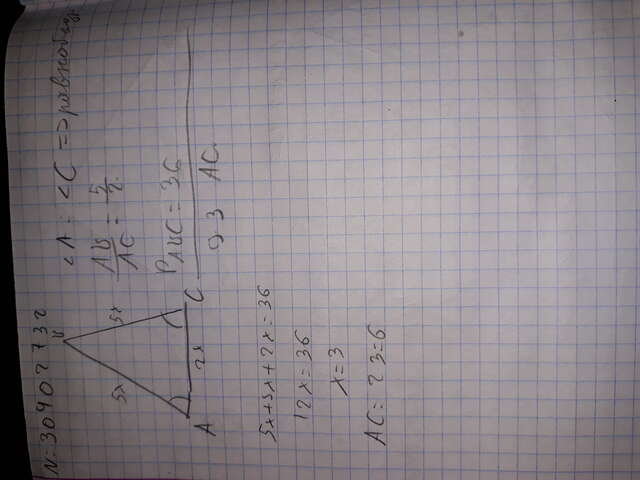 N=30902732
B
5x
5x
2x
A
C
∠A = ∠C => равнобед.
AB/AC = 5/2
P ABC = 36
AC
5x+5x+2x=36
12x=36
x=3
AC= 2 3=6